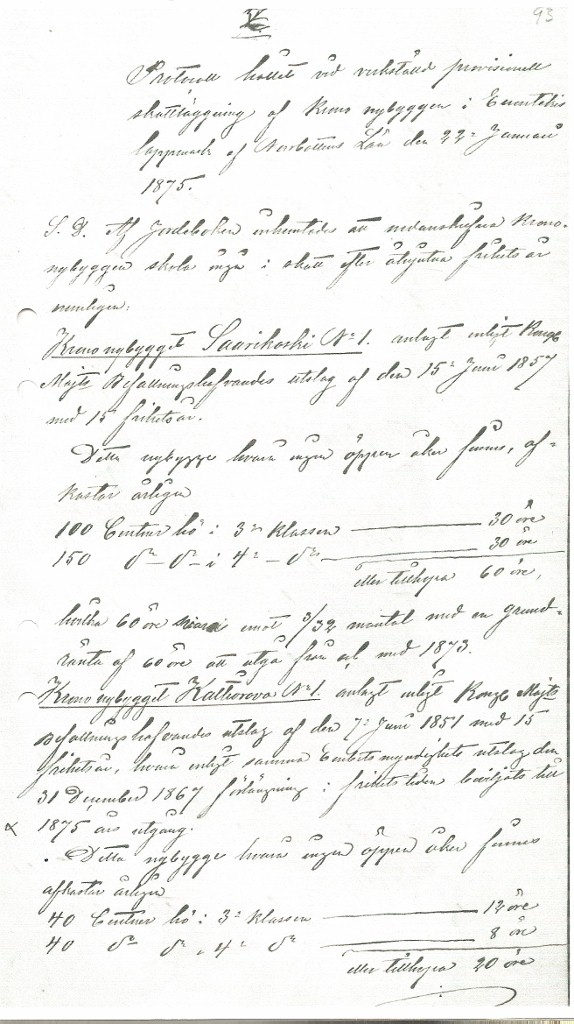 93
Protocoll hållet vid verkställd provisionell
skattläggning af Krono nybyggen i Enontekis
Lappmark af Norrbottens Län den 22: Januari
1875.
S. D. Af Jordeboken inhemtades att nedanskrifna Krono-
nybyggen skola ingå i skatt efter åtnjutna frihetsår
nemligen:
Krono nybygget Saarikoski No 1. anlagt enligt Kongl
Majts Befallningshafvandes utslag af den 15: Juni 1857
med 15 frihetsår.
Detta nybygge hvara ingen öppen åker finnes, af-
kastar årligen
100 Centner hö i 3: Klassen — 30 öre
150 do — do — i 4: — do — 30 öre
eller tillhopa 60 öre,
hvilka 60 öre svara emot 3/32 mantal med en grund-
ränta af 60 öre att utgå från och med 1873.
Krono nybygget Kattiorova No 1. anlagt enligt Kongl Majts
Befallningshafvandes utslag af den 7: Juni 1851 med 15
frihetsår, hvara enligt samma Embetsmyndighets utslag den
31 December 1867 förlängning i frihetstiden beviljats till
1875 års utgång.
Detta nybygge hvara ingen öppen åker finnes
afkastar årligen
40 Centner hö i 3: Klassen — 12 öre
40 do do , 4: do — 8 öre
eller tillhopa 20 öre